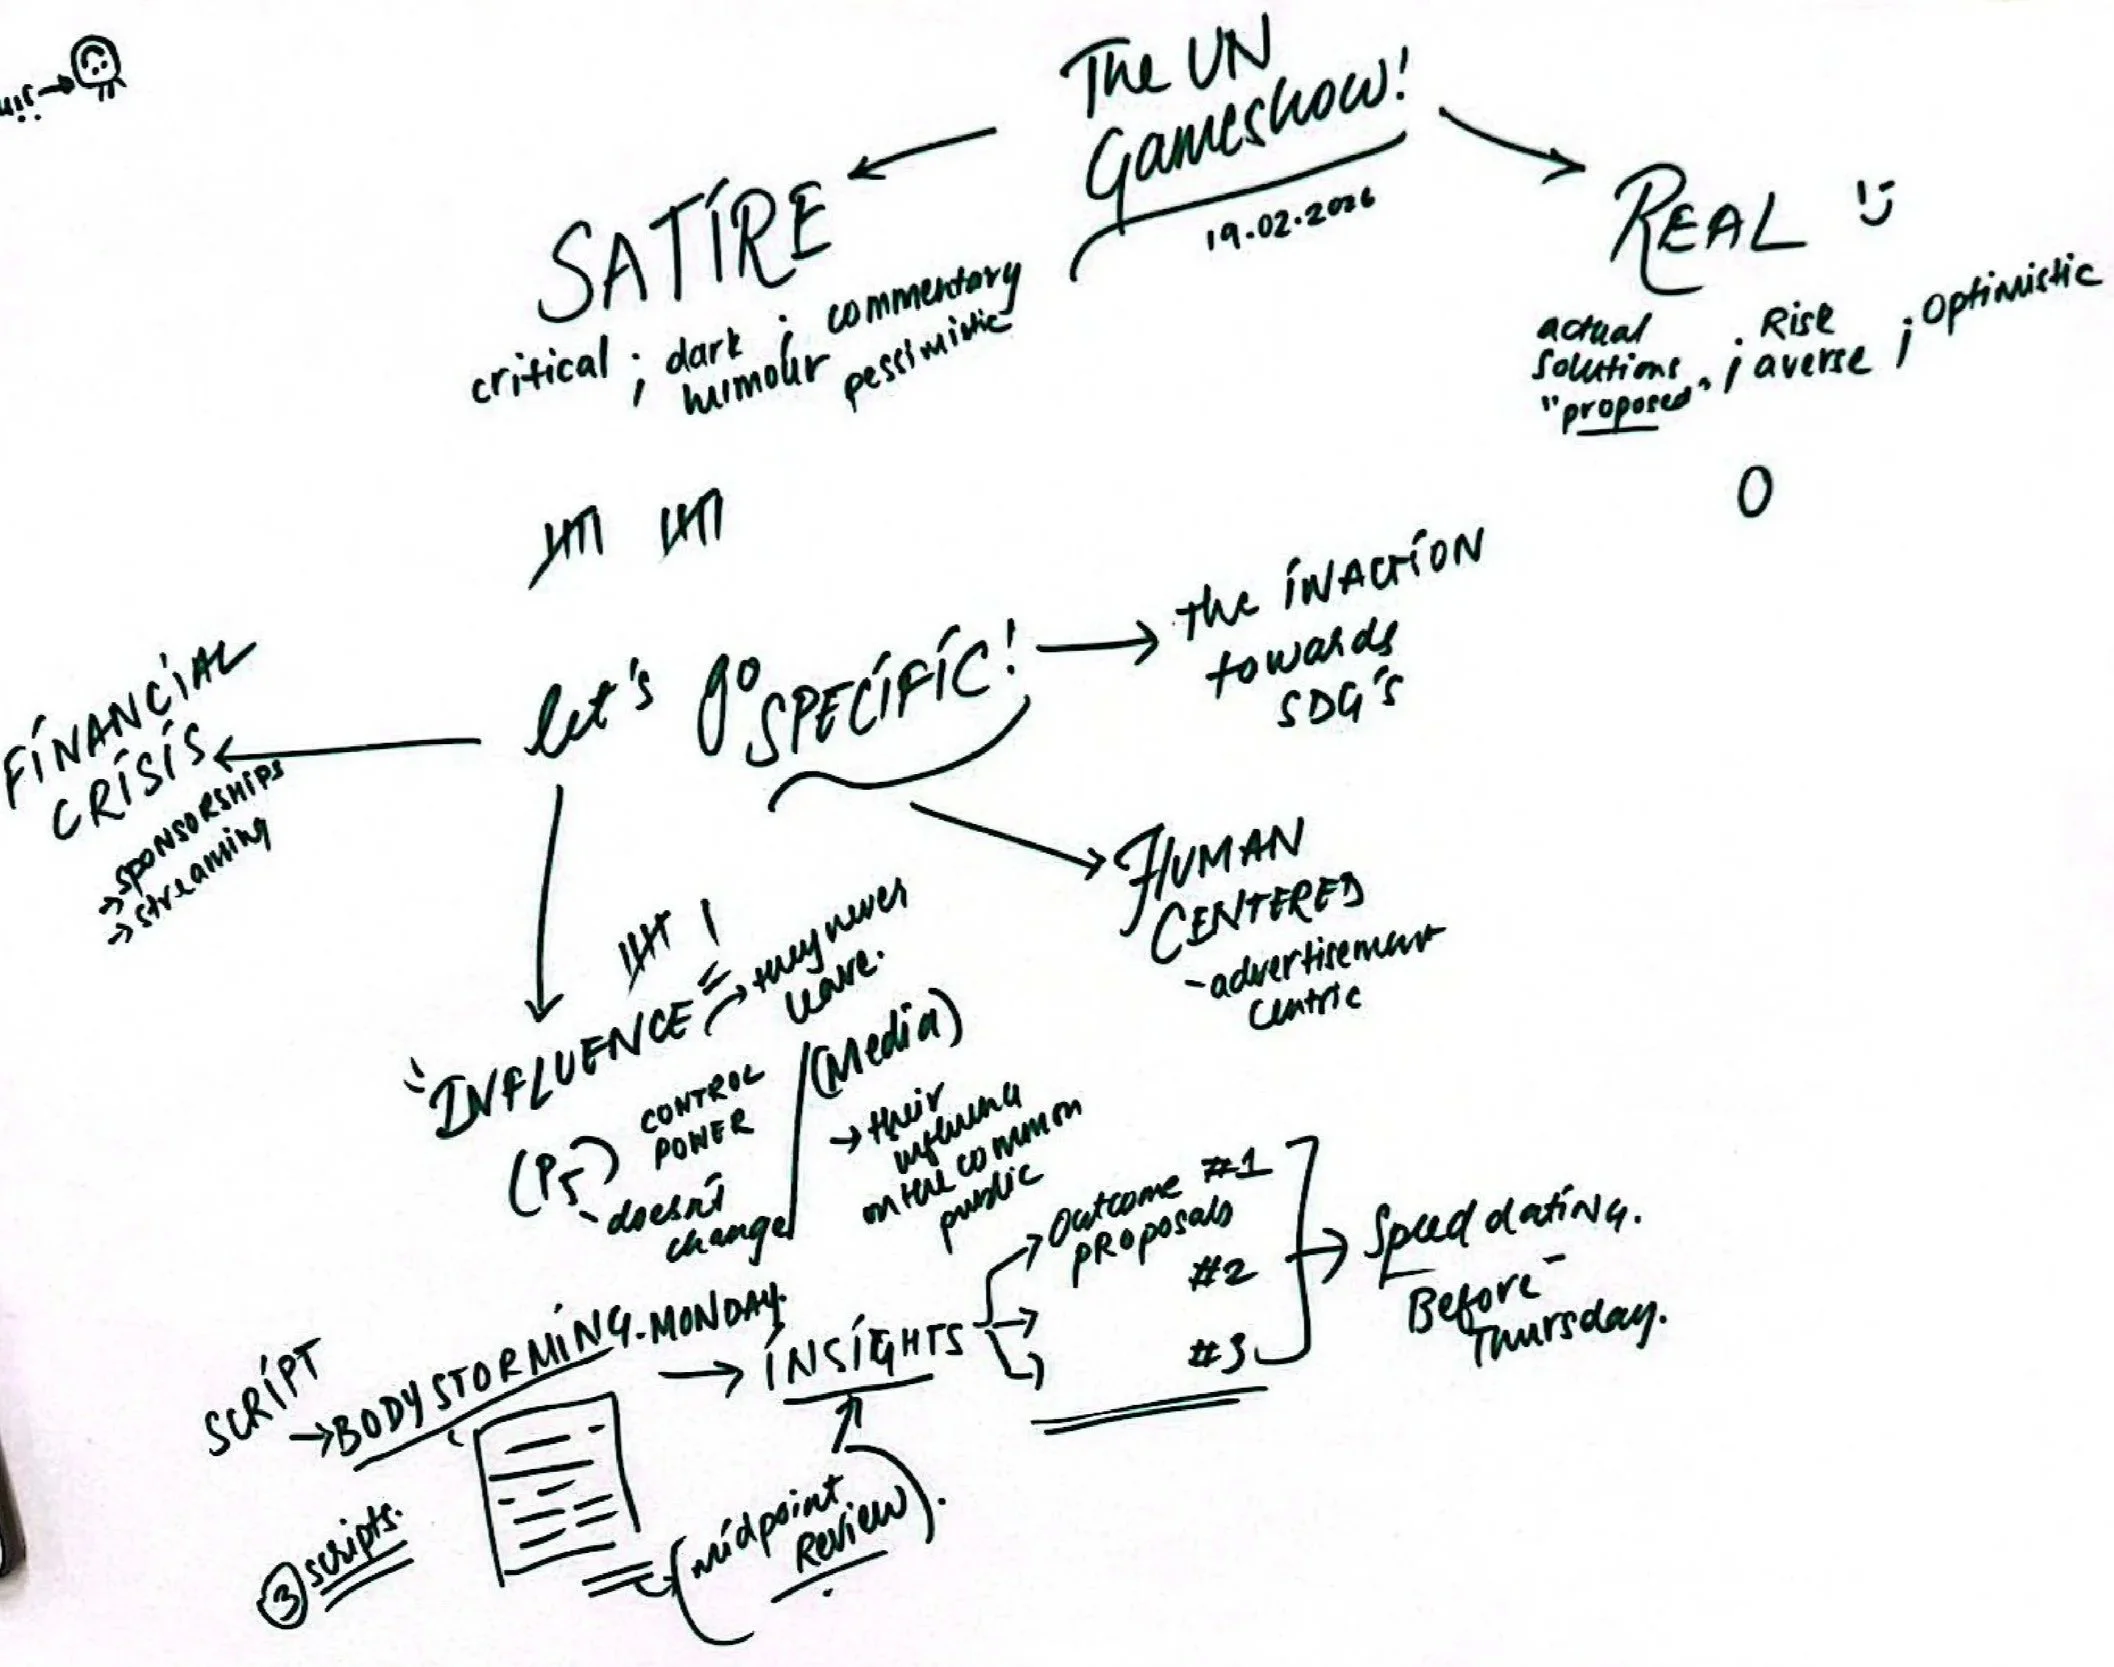 The UN
Gameshow!
19.02.2026
SATIRE
critical ; dark humour ; commentary
pessimistic
REAL
actual
solutions
"proposed" ; Risk averse ; optimistic
0
let's go SPECIFIC!
the INACTION
towards
SDG's
FINANCIAL
CRISIS
→ SPONSORSHIPS
→ streaming
HUMAN
CENTERED
- advertisement
centric
"INFLUENCE"
→ they never
leave.
(P5)
CONTROL
POWER
- doesn't
change
(Media)
→ their
influence
on the common
public
SCRIPT
→ BODYSTORMING. MONDAY.
→ INSIGHTS
→ Outcome #1
PROPOSALS
#2
#3
→ Speed dating.
Before
Thursday.
(midpoint
Review).
3 scripts.